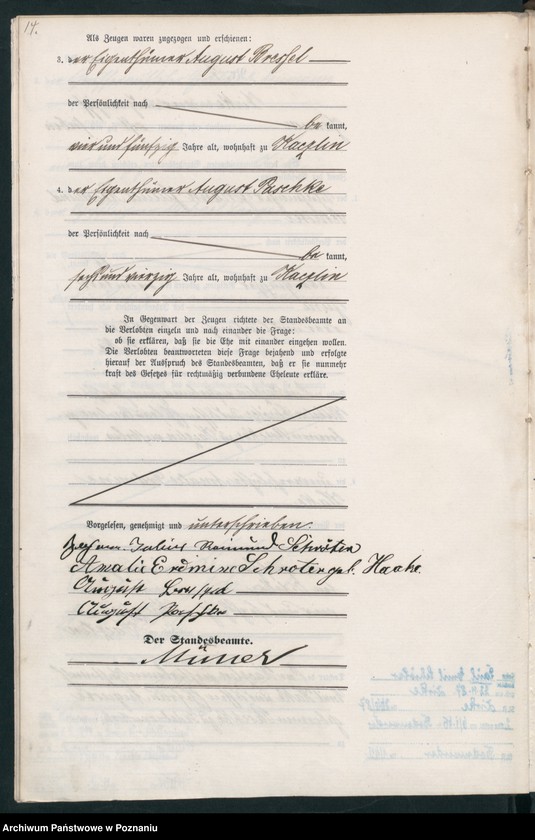 14.
Als Zeugen waren zugezogen und erschienen:
3. der Eigenthümer August Bressel
der Persönlichkeit nach
be kannt,
vier und fünfzig Jahre alt, wohnhaft zu Kaczlin
4. der Eigenthümer August Paschke
der Persönlichkeit nach
be kannt,
sechs und vierzig Jahre alt, wohnhaft zu Kaczlin
In Gegenwart der Zeugen richtete der Standesbeamte an
die Verlobten einzeln und nach einander die Frage:
ob sie erklären, daß sie die Ehe mit einander eingehen wollen.
Die Verlobten beantworteten diese Frage bejahend und erfolgte
hierauf der Ausspruch des Standesbeamten, daß er sie nunmehr
kraft des Gesetzes für rechtmäßig verbundene Eheleute erkläre.
Vorgelesen, genehmigt und unterschrieben:
Julius Raimund Schröter
Amalie Schröter geb. Haake
August
August Paschke
Der Standesbeamte.
Archiwum Państwowe w Poznaniu